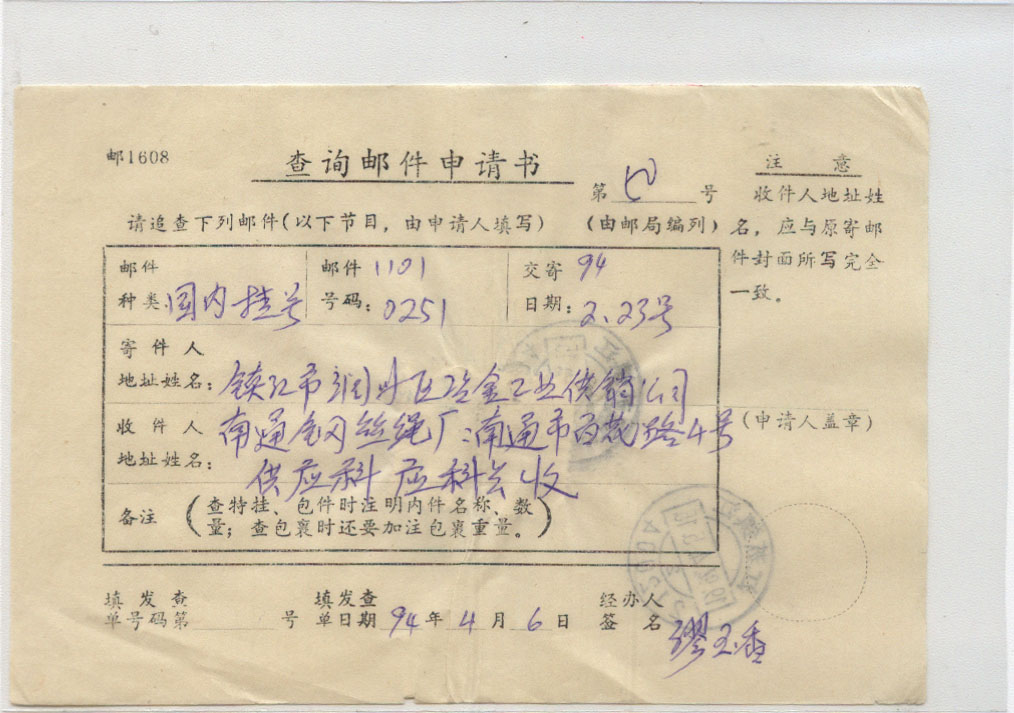 邮1608
查询邮件申请书
第 号
请追查下列邮件(以下节目，由申请人填写)
(由邮局编列)
邮件 种类: 国内挂号
邮件 号码: 1101 0251
交寄 日期: 94 2.23号
寄件人 地址姓名: 镇江市润州区冶金工业供销公司
收件人 地址姓名: 南通钢丝绳厂:南通市百花路4号
供应科 应科长收
(申请人盖章)
备注 (查特挂、包件时注明内件名称、数
量；查包裹时还要加注包裹重量。)
填发查 单号码第 号
填发查 单日期 94年4月6日
经办人 签名 缪玉香
注意
收件人地址姓
名，应与原寄邮
件封面所写完全
一致。